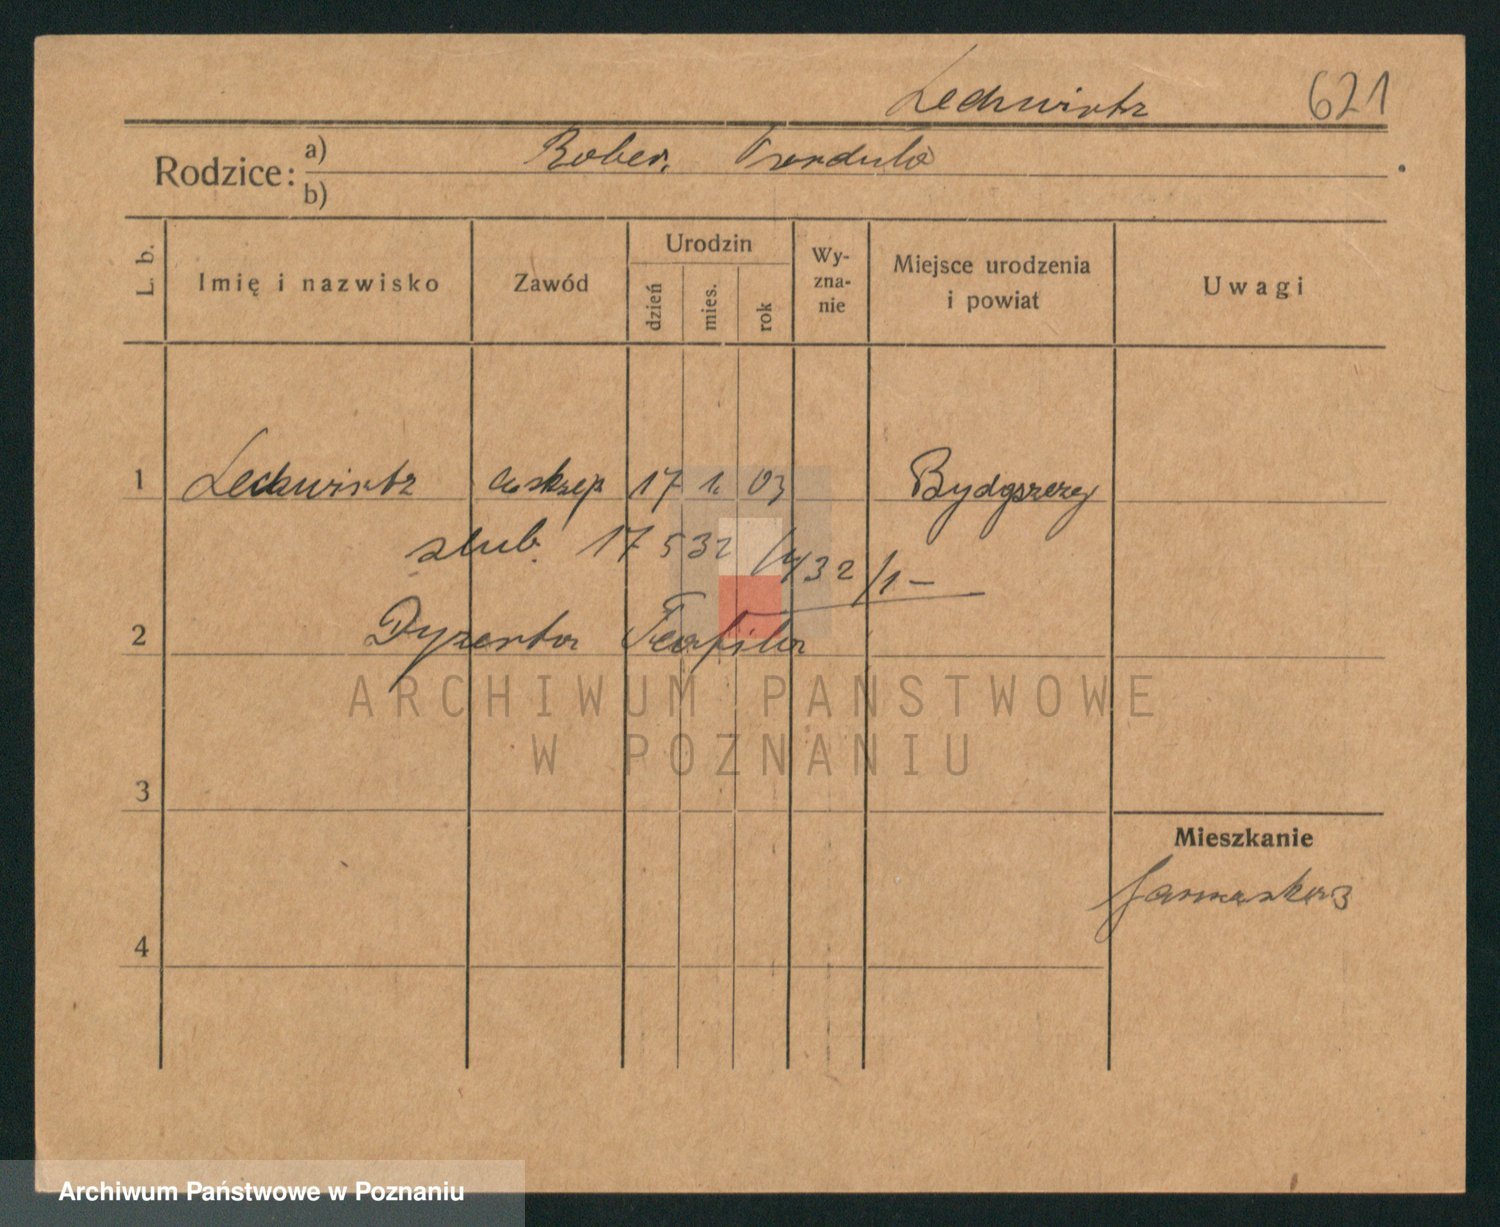 Lechwirtz 621
Rodzice: a) Rober.
b)
L. b. Imię i nazwisko Zawód Urodzin dzień mies. rok Wy-zna-nie Miejsce urodzenia i powiat Uwagi
1 Lechwirtz 17 1. 03 Bydgoszczy
slub. 17 5 32 /4/32 /1 —
2 Teofila
3
Mieszkanie
4
ARCHIWUM PAŃSTWOWE
W POZNANIU
Archiwum Państwowe w Poznaniu